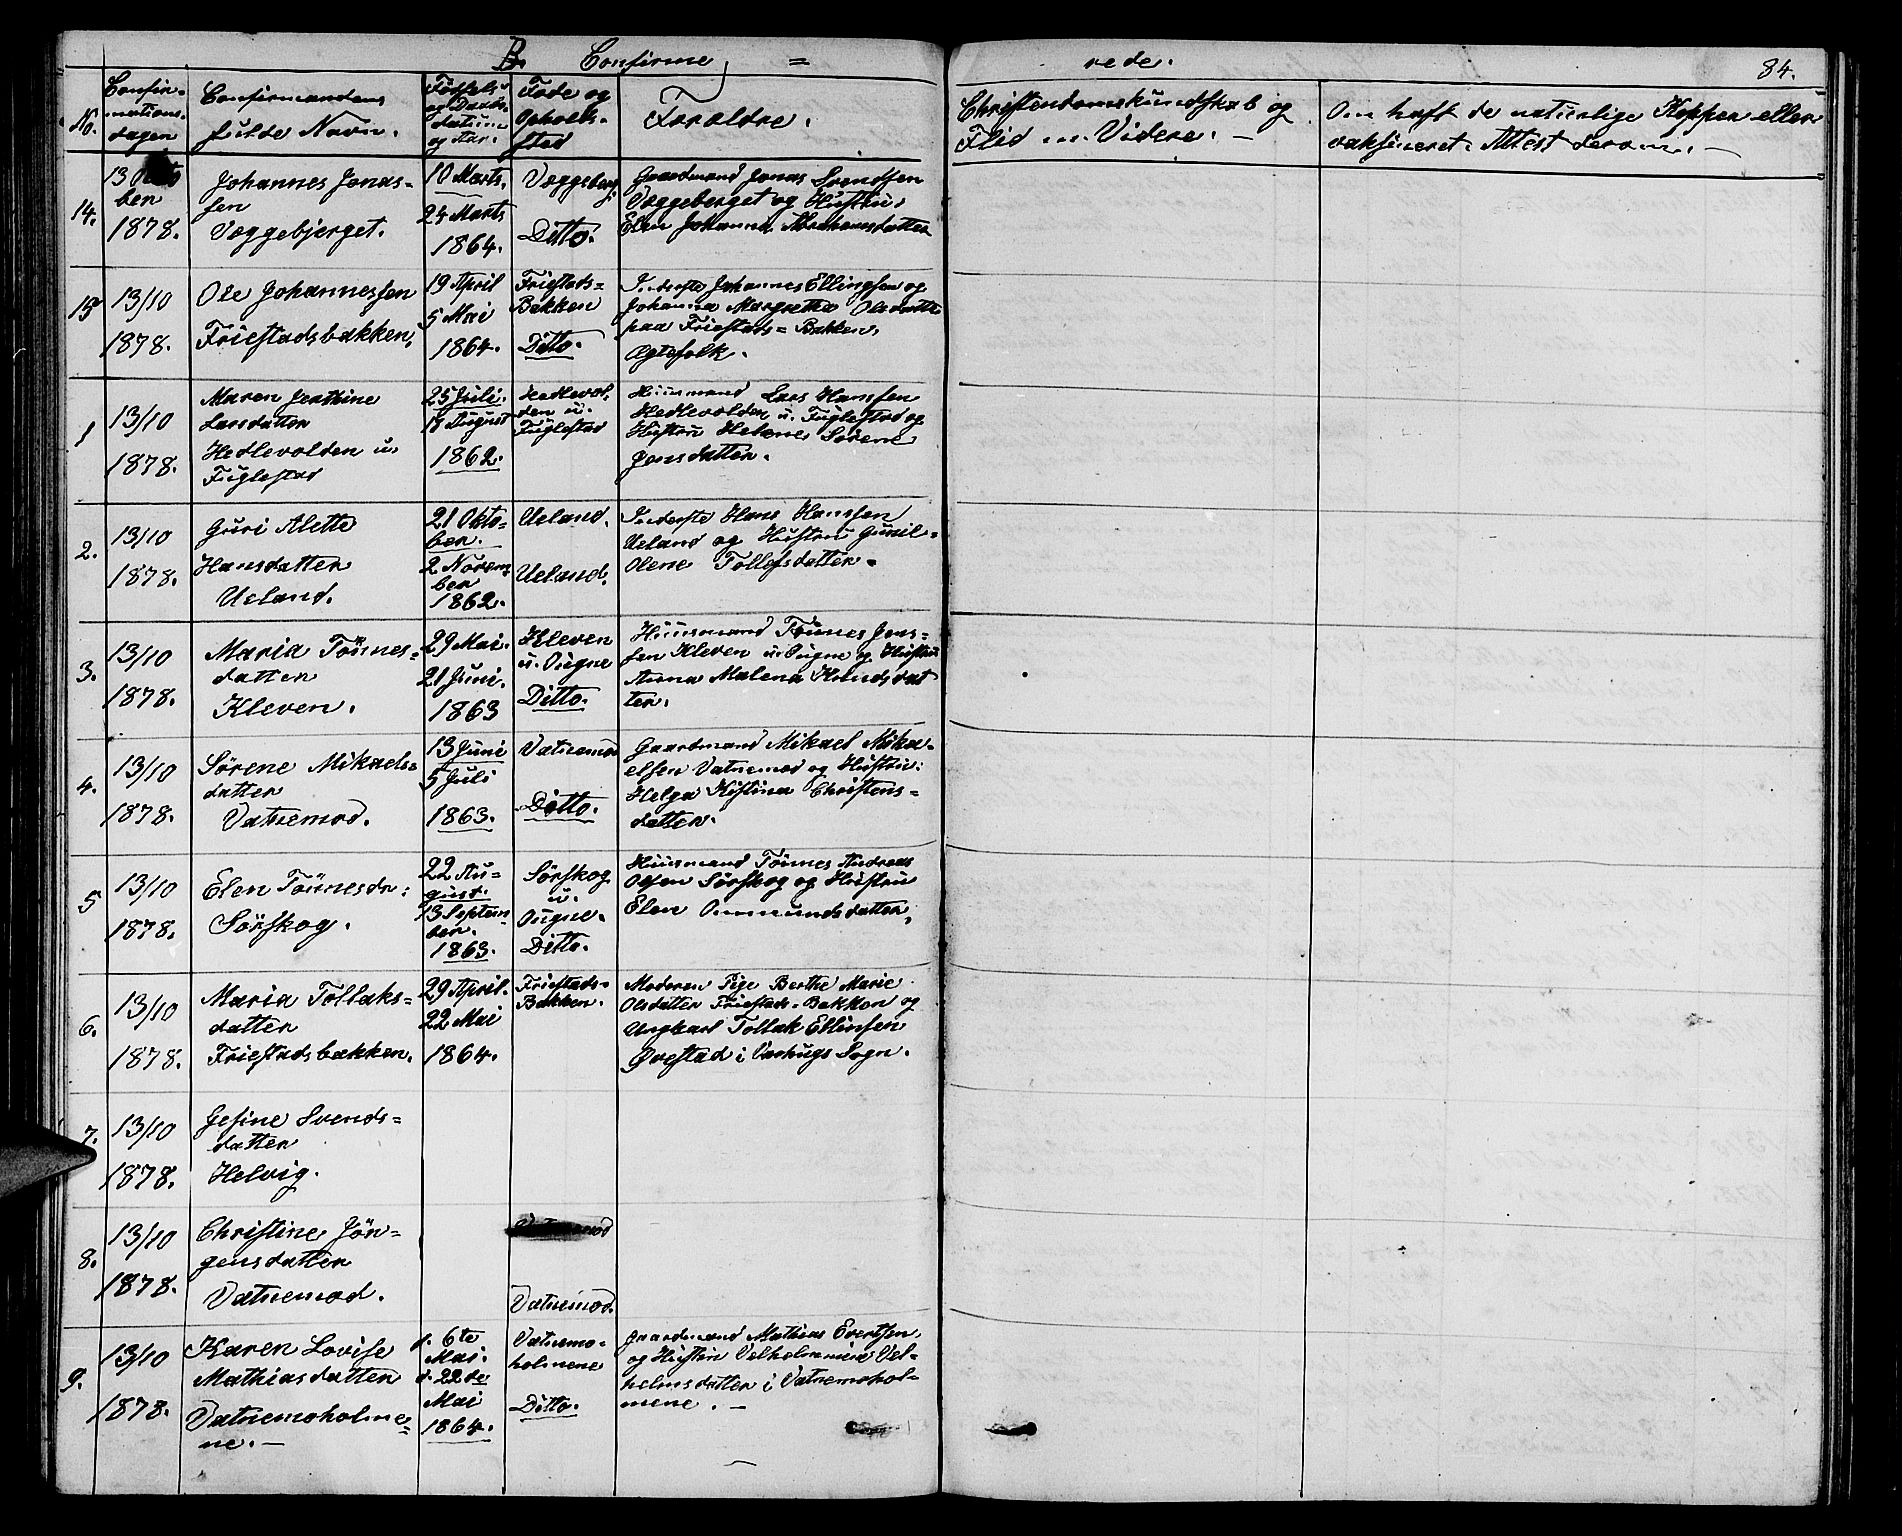 B. Confirme = rede. 84.
No.
Confir-
mations-
dagen
Confirmandens
fulde Navn.
Fødsels-
og Daabs-
datum
og Aar.
Føde og
Opholds-
sted
Forældre.
Christendomskundskab og
Flid m. Videre. -
Om haft de naturlige Kopper eller
vaksineret. Attest derom. -
14.
13 Okto
ber
1878.
Johannes Jonas-
sen
Væggebjerget.
10 Marts.
24 Marts
1864.
Væggeberg
Ditto.
Gaardmand Jonas Svendsen
Væggeberget og Hustru
Elen Johanna Abrahamsdatter
15
13/10
1878.
Ole Johannessen
Friestadsbakken,
19 April
5 Mai
1864.
Friestads=
Bakken
Ditto.
Inderste Johannes Ellingsen og
Johanna Margretha Olsdatter
paa Friestads=Bakken,
Ægtefolk.
1
13/10
1878.
Maren Jerthine
Larsdatter
Hedlevolden u.
Fuglestad
25 Juli.
18 August
1862.
Hedlevol,
den u.
Fuglestad
Huusmand Lars Hansen
Hedlevolden u. Fuglestad og
Hustru Helene Sørene
Jonsdatter.
2.
13/10
1878.
Guri Alette
Hansdatter
Ueland.
21 Okto=
ber.
2 Novem
ber
1862.
Ueland.
Ueland.
Inderste Hans Hansen
Ueland og Hustru Gunil=
Olene Tollefsdatter.
3.
13/10
1878.
Maria Tönnes=
datter
Kleven.
29 Mai.
21 Juni.
1863
Kleven
u. Ougne
Ditto.
Huusmand Tönnes Jons=
sen Kleven u. Ougne og Hustru
Anna Malena Knudsdat
ter.
4.
13/10
1878.
Sörene Mikaels=
datter
Vatnemod.
13 Juni
5 Juli
1863.
Vatnemod
Ditto.
Gaardmand Mikael Mika=
elsen Vatnemod og Hustru:
Helga Kistina Christens=
datter.
5
13/10
1878.
Elen Tönnesdr:
Sörskog.
22 Au=
gust.
13 Septem
ber.
1863.
Sörskog
u.
Ougne.
Ditto.
Huusmand Tönnes Andreas
Olsen Sörskog og Hustru
Elen Ommundsdatter,
6.
13/10
1878.
Maria Tollaks=
datter
Friestadsbakken.
29 April.
22 Mai
1864.
Friestads=
Bakken.
Moderen Pige Berthe Marie
Olsdatter Friestads=Bakken og
Ungkarl Tollak Ellinsen
Øvestad i Varhugs Sogn.
7.
13/10
1878.
Gesine Svends=
datter
Helvig.
8.
13/10
1878.
Christine Jör=
gensdatter
Vatnemod.
Vatnemod.
9.
13/10
1878.
Karen Lovise
Mathiasdatter
Vatnemoholme=
ne. -
d. 6te
Mai.
d. 22de
Mai
1864.
Vatnemo-
holmene
Ditto.
Gaardmand Mathias Evertsen,
og Hustru Velhelmmine Vel=
helmsdatter i Vatnemohol=
mene. -